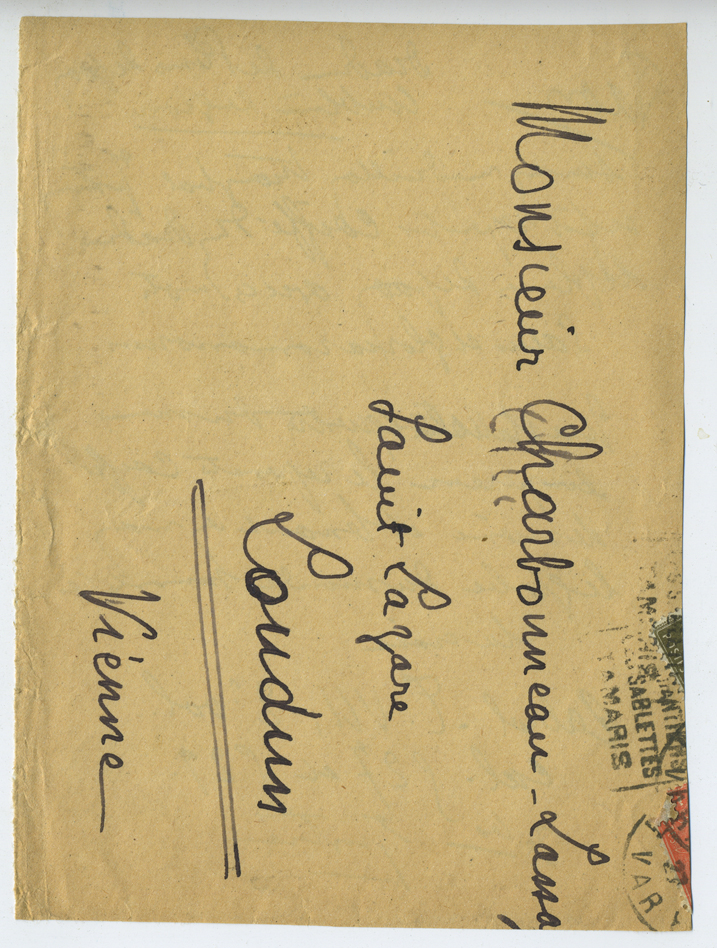 Monsieur Charbonneau-Lassay
Saint Lazare
Loudun
Vienne
SABLETTES
TAMARIS
VAR